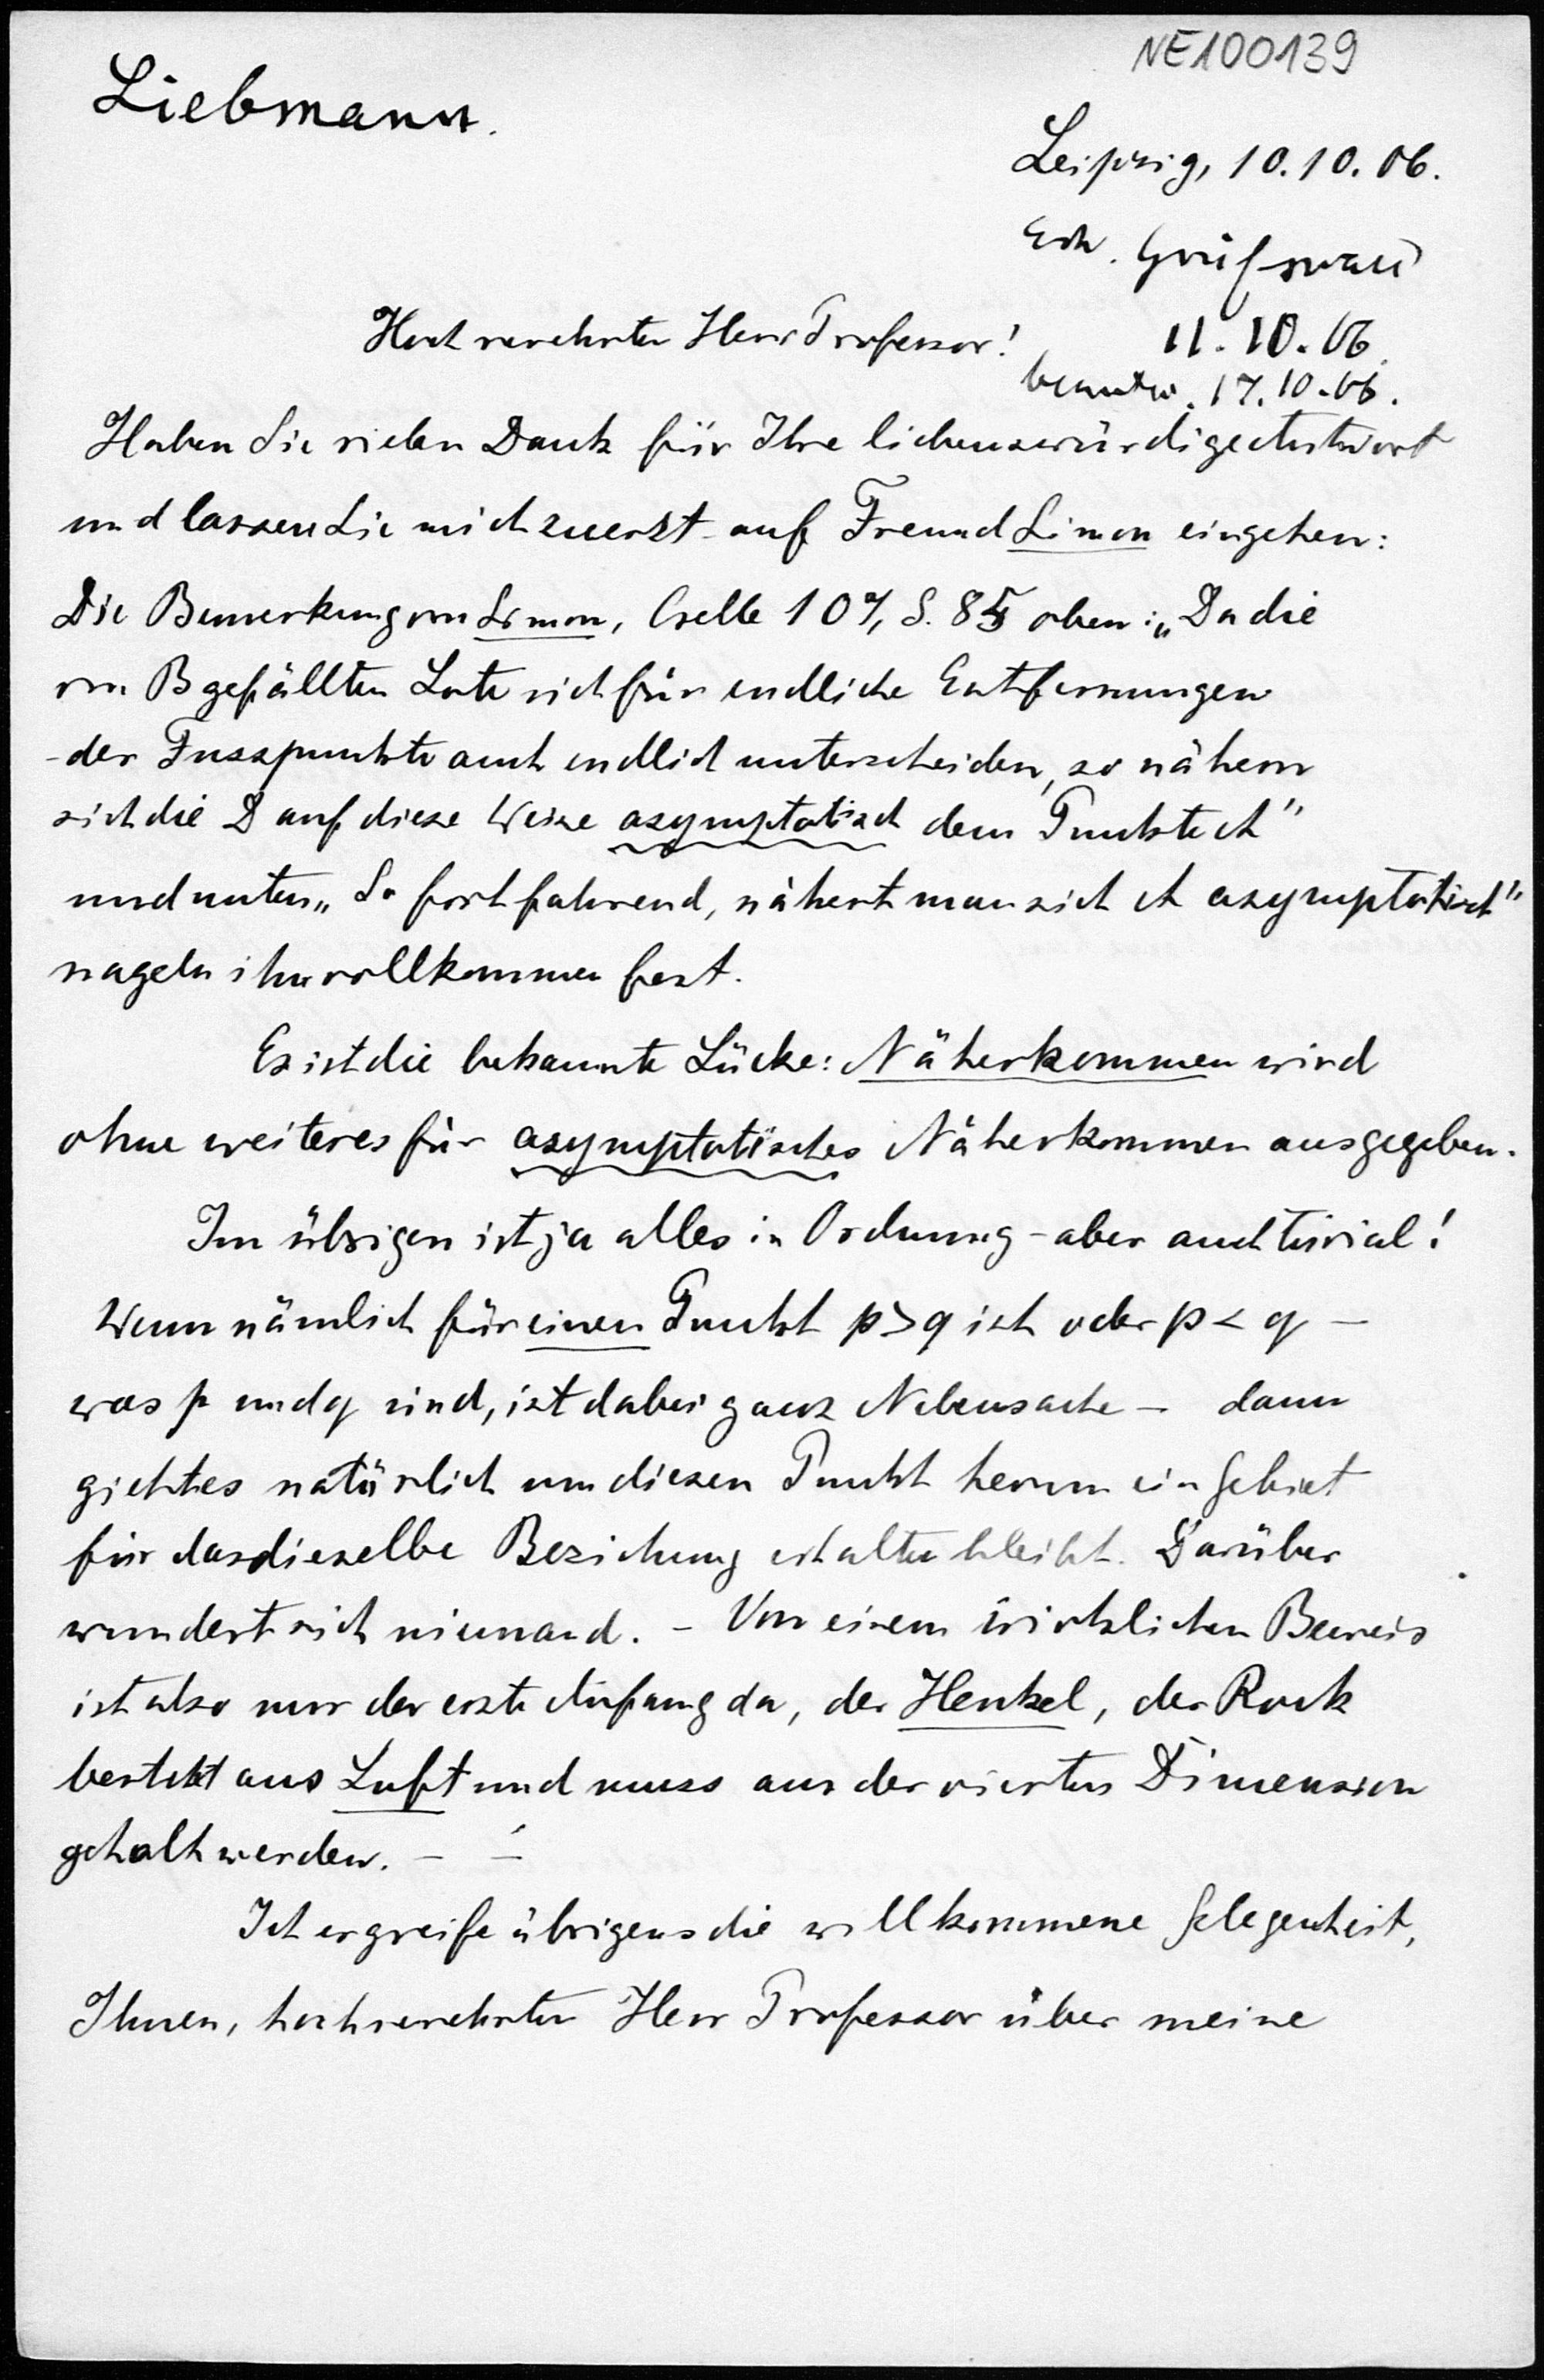 NE100139
Liebmann.
Leipzig, 10.10.06.
Erh. Greifswald
Hochverehrter Herr Professor!
11.10.06.
beantw. 17.10.06.
Haben Sie vielen Dank für Ihre liebenswürdige Antwort
und lassen Sie mich zuerst auf Freund Simon eingehen:
Die Bemerkung von Simon, Crelle 107, S. 85 oben: „Da die
von B gefällten Lote sich für endliche Entfernungen
der Fusspunkte auch endlich unterscheiden, so nähern
sich die D auf diese Weise asymptotisch dem Punkte A"
und unten „So fortfahrend, nähert man sich A asymptotisch"
nageln ihn vollkommen fest.
Es ist die bekannte Lücke: Näherkommen wird
ohne weiteres für asymptotisches Näherkommen ausgegeben.
Im übrigen ist ja alles in Ordnung - aber auch trivial!
Wenn nämlich für einen Punkt p > q ist oder p < q –
was p und q sind, ist dabei ganz Nebensache – dann
giebt es natürlich um diesen Punkt herum ein Gebiet
für das dieselbe Beziehung erhalten bleibt. Darüber
wundert sich niemand. – Von einem wirklichen Beweis
ist also nur der erste Anfang da, der Henkel, der Rock
besteht aus Luft und muss aus der vierten Dimension
geholt werden. – –
Ich ergreife übrigens die willkommene Gelegenheit,
Ihnen, hochverehrter Herr Professor über meine